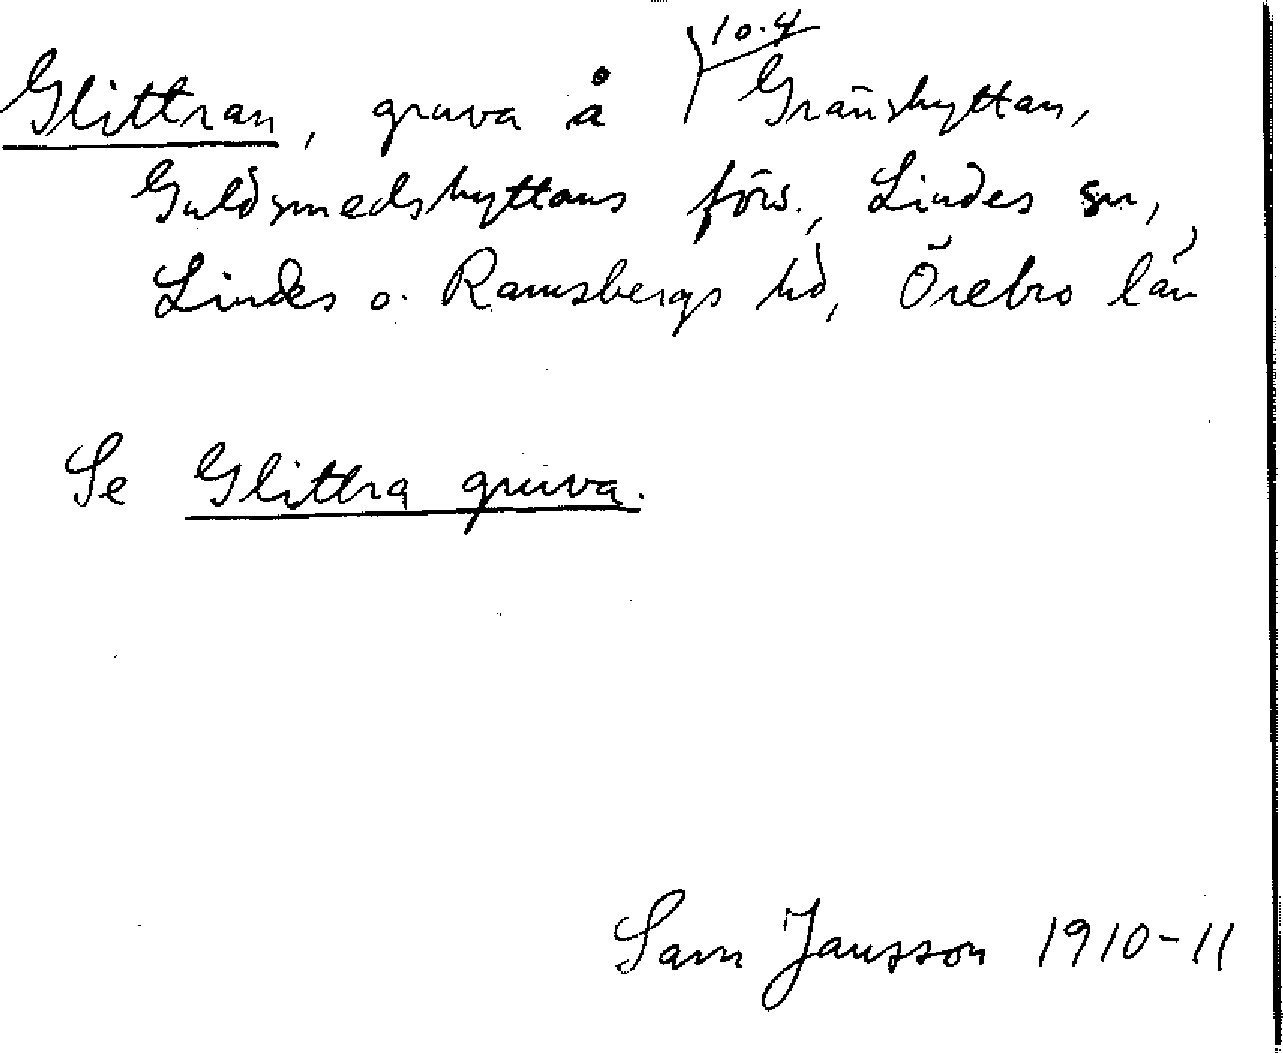 10.4
Glittran, gruva å Gränshyttan,
Guldsmedshyttans förs., Lindes sn,
Lindes o. Ramsbergs hd, Örebro län
Se Glittra gruva.
Sam Jansson 1910-11